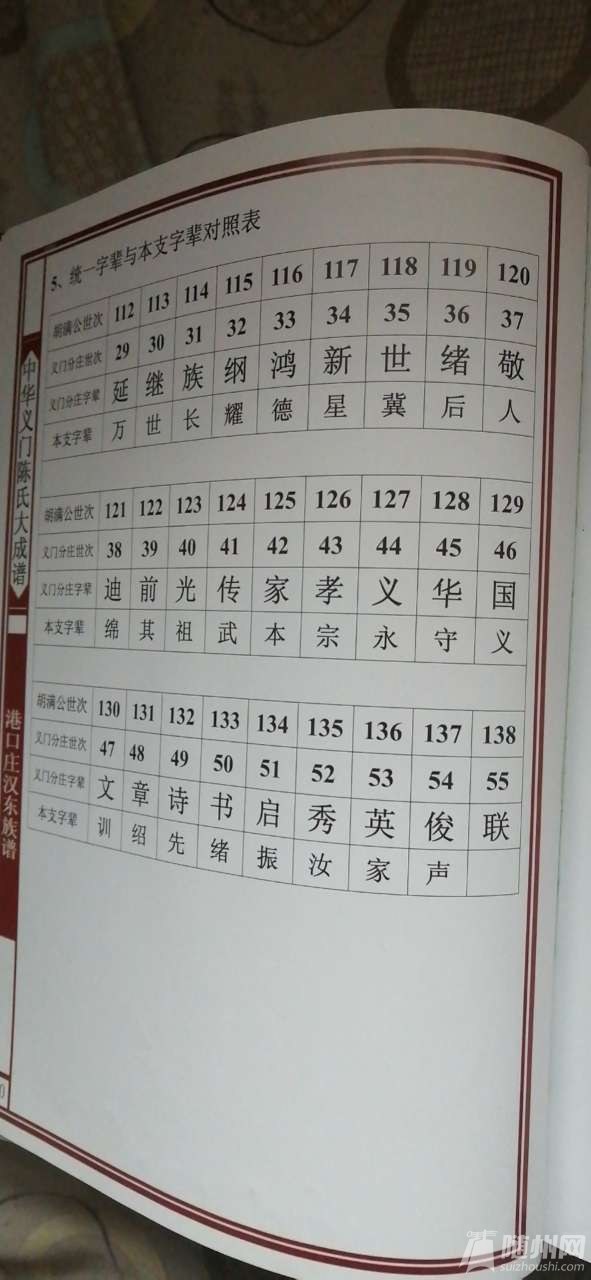 5、统一字辈与本支字辈对照表
胡满公世次 112 113 114 115 116 117 118 119 120
义门分庄世次 29 30 31 32 33 34 35 36 37
义门分庄字辈 延 继 族 纲 鸿 新 世 绪 敬
本支字辈 万 世 长 耀 德 星 冀 后 人
胡满公世次 121 122 123 124 125 126 127 128 129
义门分庄世次 38 39 40 41 42 43 44 45 46
义门分庄字辈 迪 前 光 传 家 孝 义 华 国
本支字辈 绵 其 祖 武 本 宗 永 守 义
胡满公世次 130 131 132 133 134 135 136 137 138
义门分庄世次 47 48 49 50 51 52 53 54 55
义门分庄字辈 文 章 诗 书 启 秀 英 俊 联
本支字辈 训 绍 先 绪 振 汝 家 声
中华义门陈氏大成谱
港口庄汉东族谱
随州网
suizhoushi.com